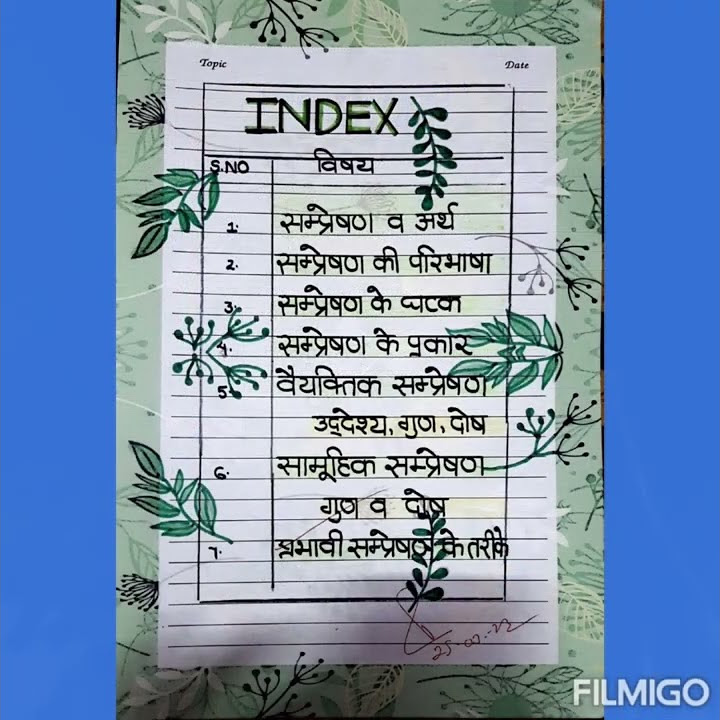 Topic Date
INDEX
S.NO विषय
1. सम्प्रेषण व अर्थ
2. सम्प्रेषण की परिभाषा
3. सम्प्रेषण के घटक
4. सम्प्रेषण के प्रकार
5. वैयक्तिक सम्प्रेषण
उद्देश्य, गुण, दोष
6. सामूहिक सम्प्रेषण
गुण व दोष
7. प्रभावी सम्प्रेषण के तरीके
FILMIGO